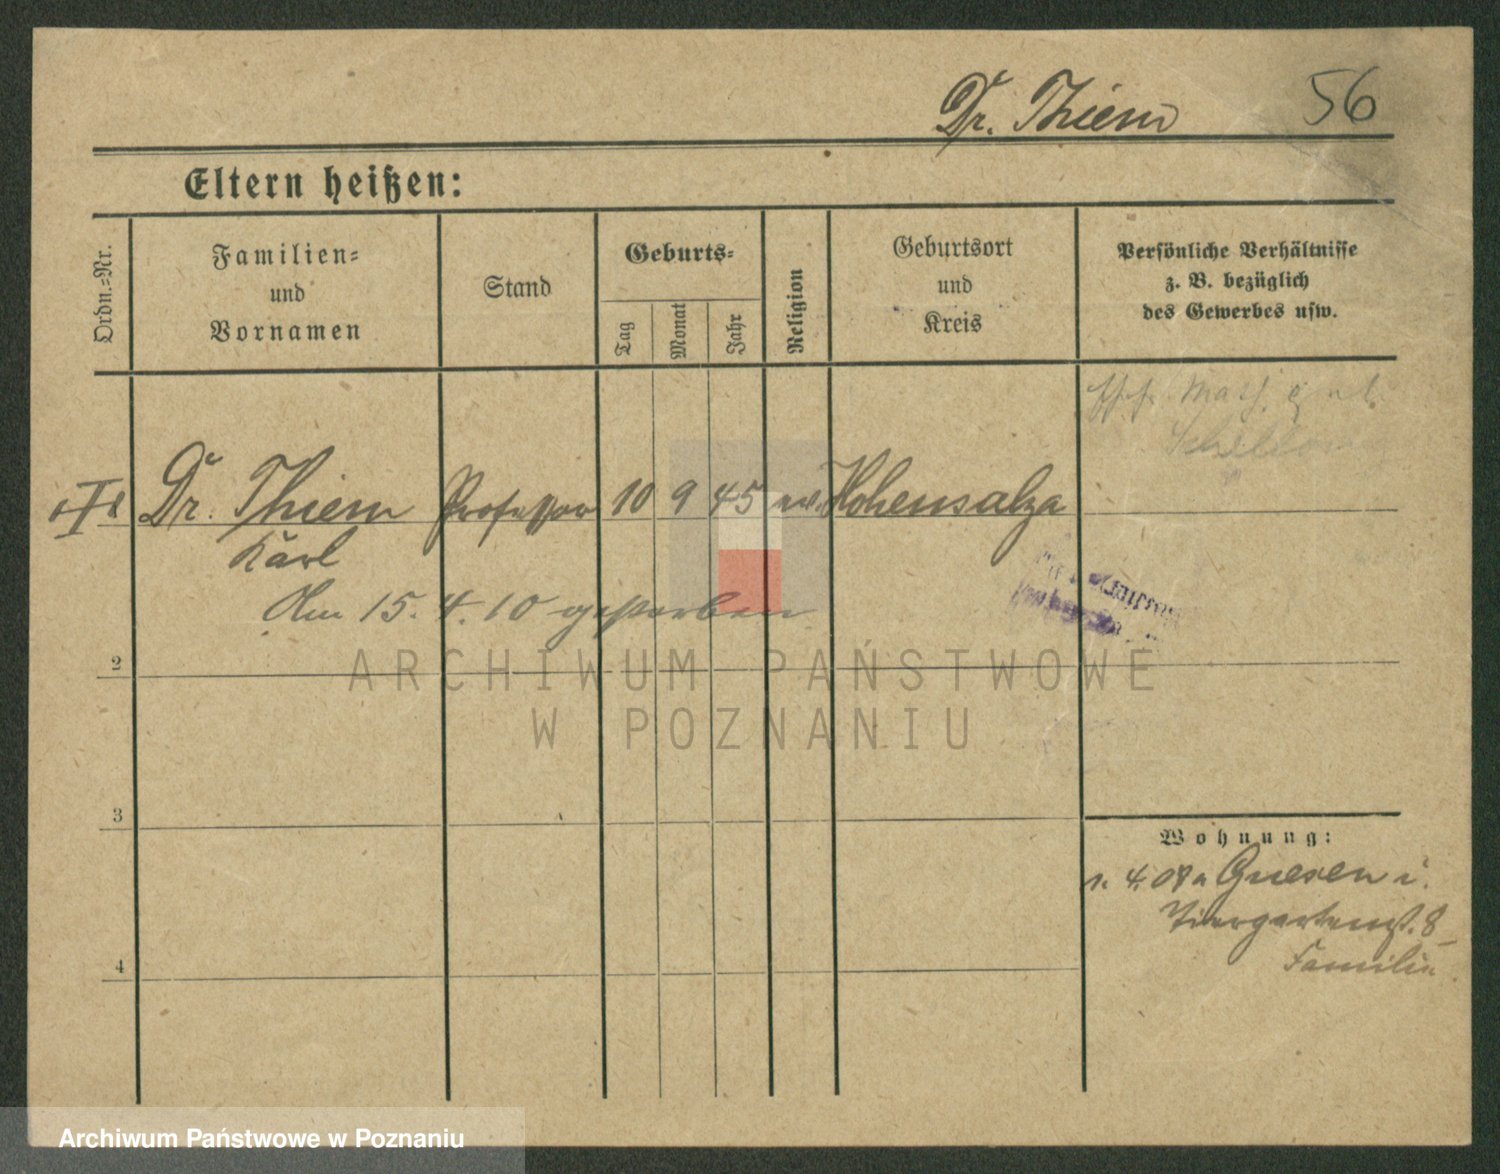 Dr. Thiem 56
Eltern heißen:
Ordn.=Nr.
Familien=
und
Vornamen
Stand
Geburts=
Tag
Monat
Jahr
Religion
Geburtsort
und
Kreis
Persönliche Verhältnisse
z. B. bezüglich
des Gewerbes usw.
Dr. Thiem Professor 10 9 45 ev. Hohensalza
Karl
Am 15. 4. 10 gestorben
2
ARCHIWUM PAŃSTWOWE
W POZNANIU
3
Wohnung:
1. 4. 07 n Gnesen
Tiergartenst. 8
Familie
4
Archiwum Państwowe w Poznaniu